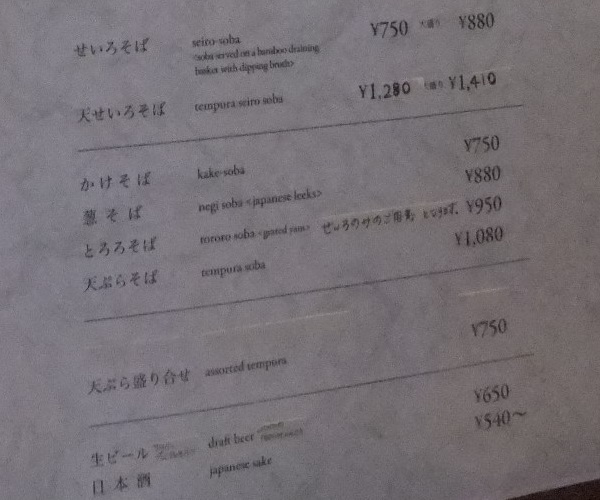 せいろそば seiro-soba ¥750 大盛り ¥880
<soba served on a bamboo draining
basket with dipping broth>
天せいろそば tempura seiro soba ¥1,280 大盛り ¥1,410
かけそば kake-soba ¥750
葱そば negi soba <japanese leeks> ¥880
とろろそば tororo soba <grated yam> せいろのみのご用意となります。 ¥950
天ぷらそば tempura soba ¥1,080
天ぷら盛り合せ assorted tempura ¥750
生ビール draft beer ¥650
日本酒 japanese sake ¥540～